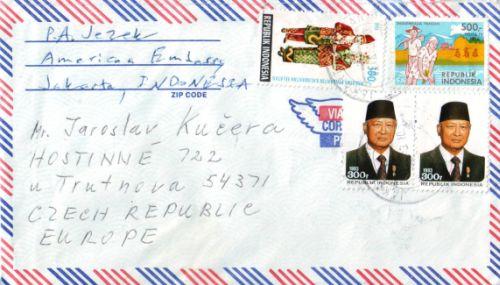 P.A. Jezek
American Embassy
Jakarta, INDONESIA
ZIP CODE
Mr. Jaroslav Kučera
HOSTINNÉ 722
u Trutnova 54371
CZECH REPUBLIC
EUROPE
VIA
COR
REPUBLIK INDONESIA
500.-
REPUBLIK
INDONESIA
1993
300r
REPUBLIK INDONESIA
1993
300r
REPUBLIK INDONESIA